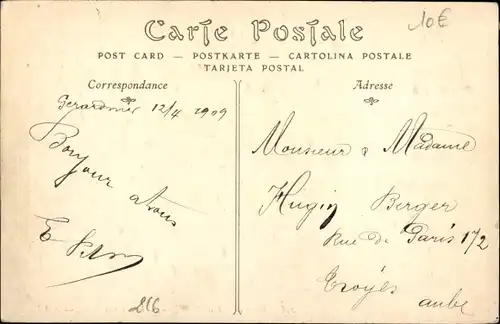 10€
Carte Postale
POST CARD — POSTKARTE — CARTOLINA POSTALE
TARJETA POSTAL
Correspondance
Gerardmer 12/4 1909
Bonjour a tous
E
216
Adresse
Monsieur & Madame
Hugin Berger
Rue de Paris 172
Troyes
aube